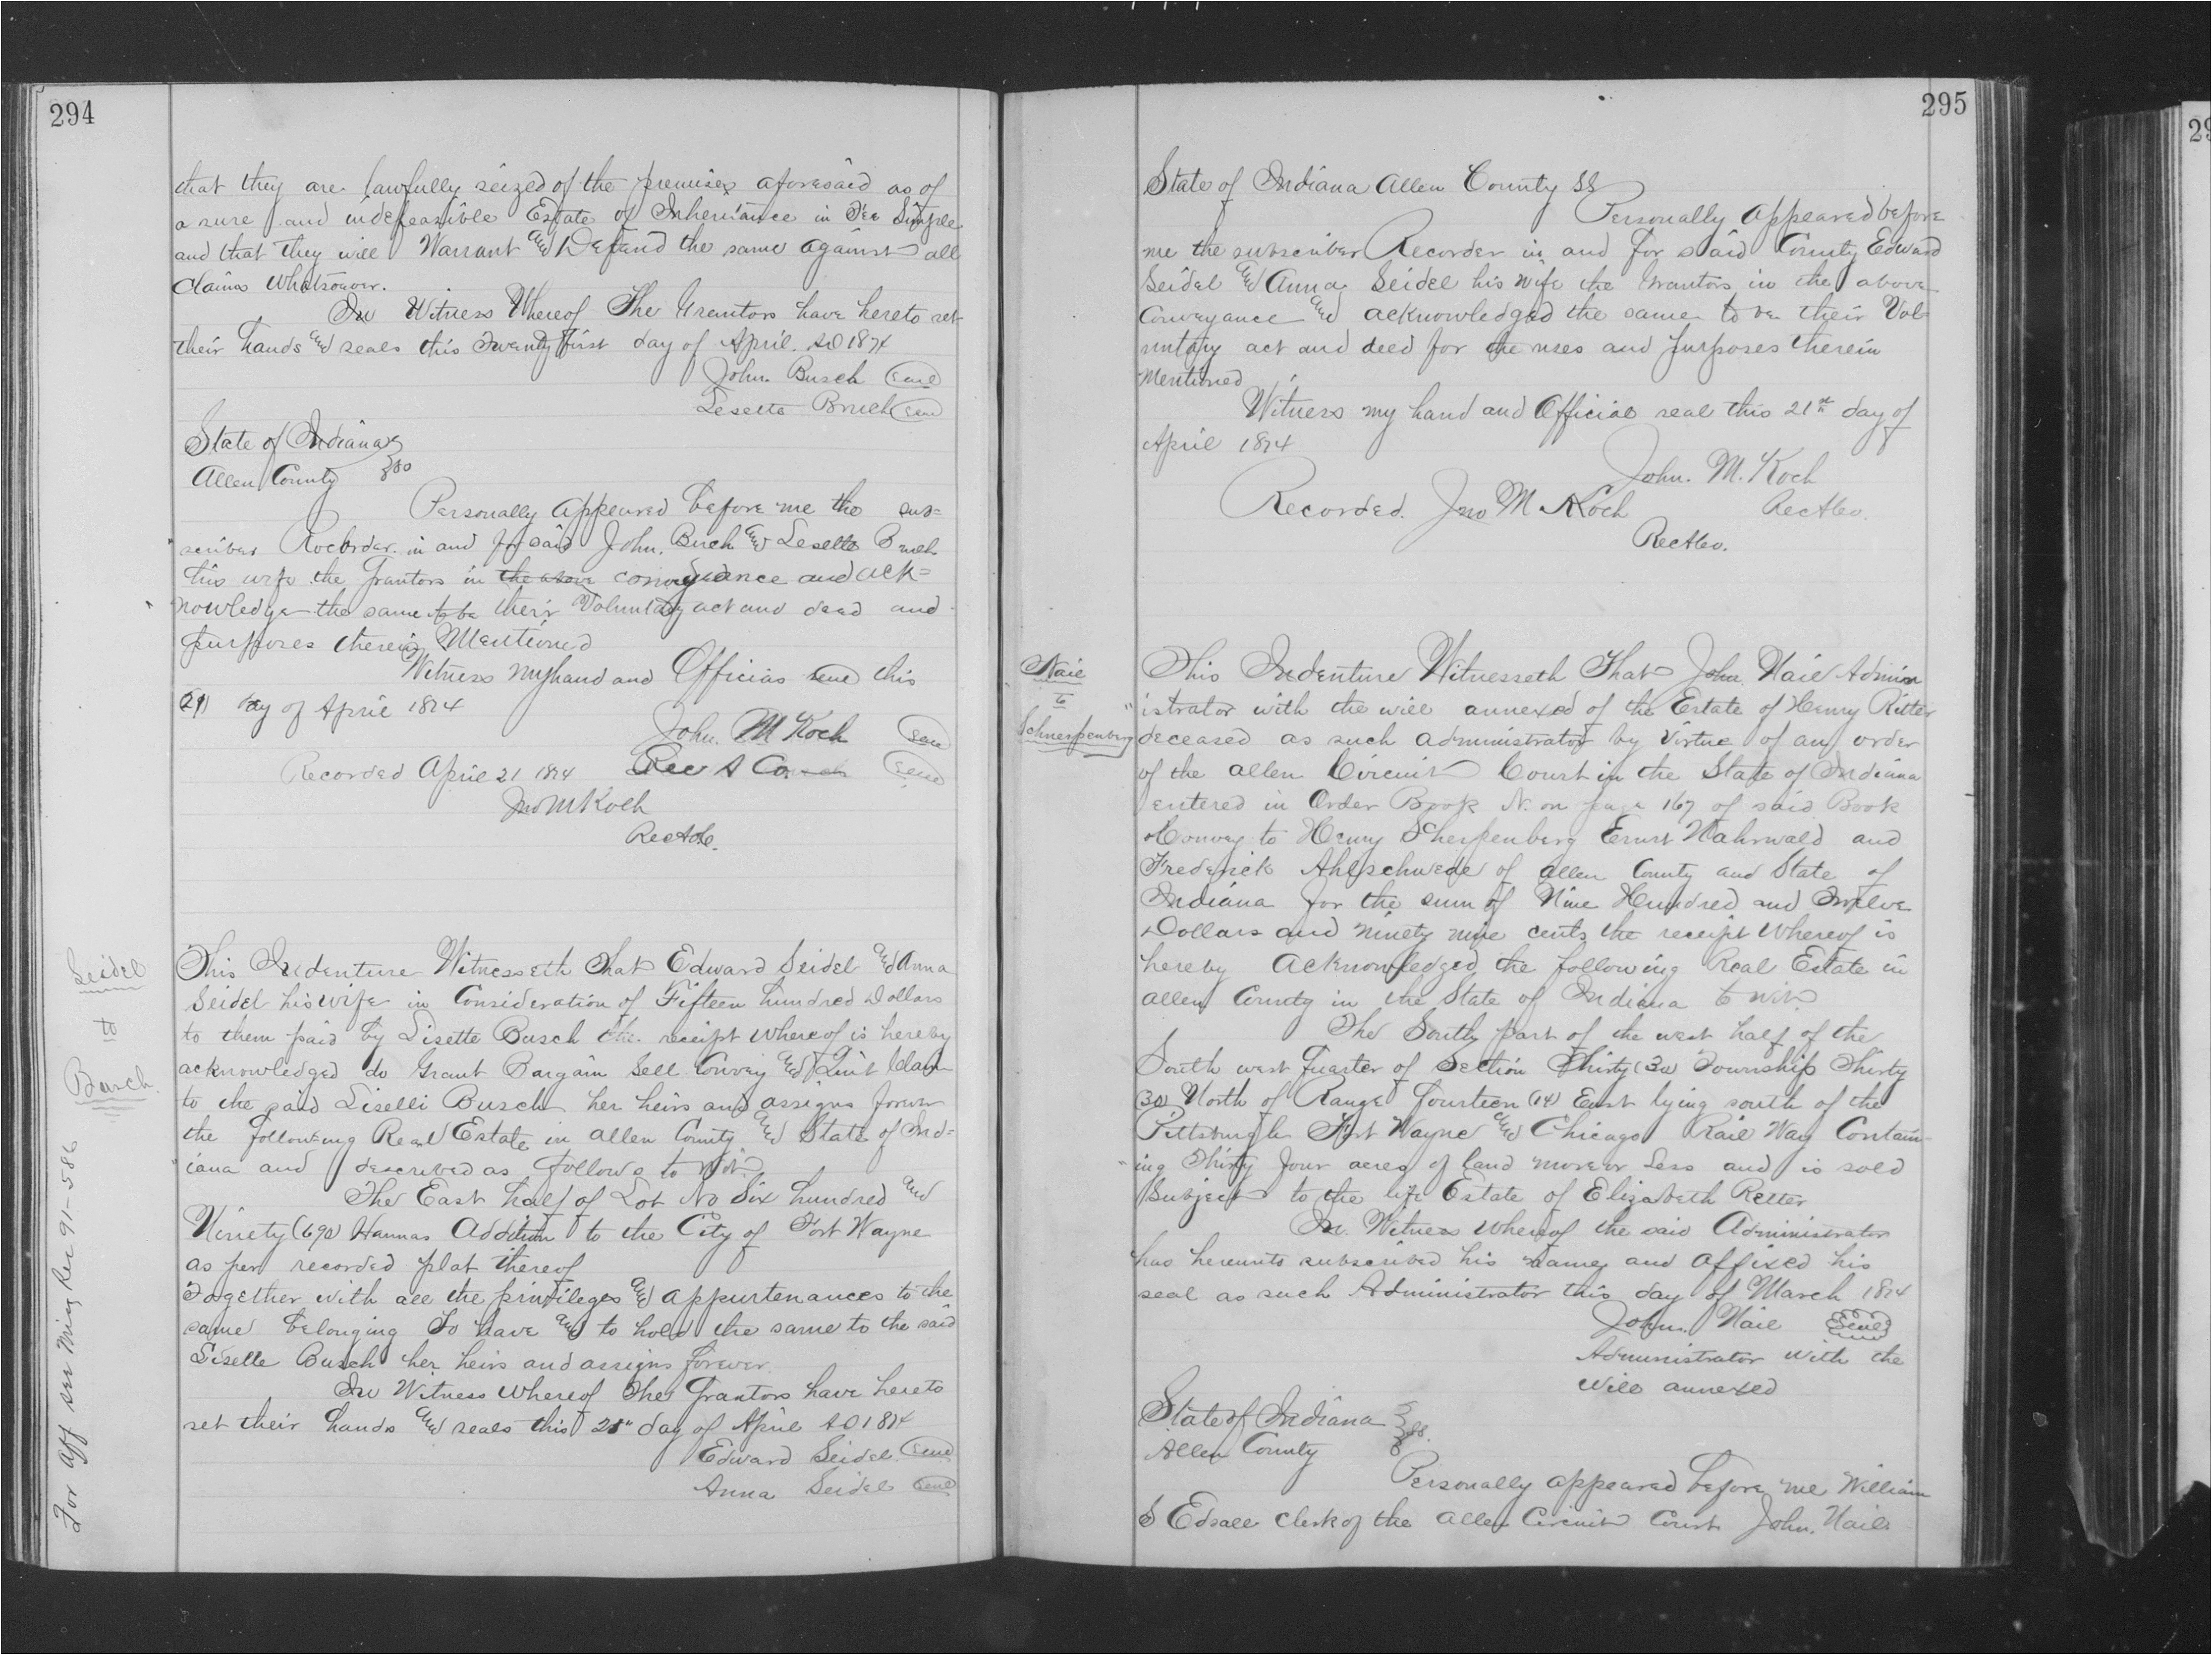 294
that they are lawfully seized of the premises aforesaid as of
a sure and indefeasible Estate of Inheritance in Fee Simple
and that they will Warrant and Defend the same against all
claims Whatsoever.
In Witness Whereof The Grantors have hereto set
their hands and seals this Twenty first day of April. AD 1874
John. Busch Seal
Lesette Bruch Seal
State of Indiana
Allen County } ss
Personally appeared before me the sub=
scriber Recorder in and for said John. Buch and Lesette Bruch
his wife the Grantors in the above conveyance and ack=
nowledge the same to be their Voluntary act and deed and
purposes therein Mentioned
Witness my hand and Official seal this
(21) day of April 1874
John. M Koch Seal
Recorded April 21 1874 Rec A Co Seal
Jno M Koch
RecACo.
Seidel
to
Busch
For Aff see Misc Rec 91-586
This Indenture Witnesseth That Edward Seidel and Anna
Seidel his wife in Consideration of Fifteen hundred Dollars
to them paid by Lisette Busch the receipt whereof is hereby
acknowledged do Grant Bargain Sell Convey and Quit Claim
to the said Liselli Busch her heirs and assigns forever
the following Real Estate in Allen County and State of Ind=
iana and described as follows to wit
The East half of Lot No Six hundred and
Ninety (690) Hannas Addition to the City of Fort Wayne
as per recorded plat thereof
Together with all the privileges and appurtenances to the
same belonging To have and to hold the same to the said
Liselle Busch her heirs and assigns forever
In Witness whereof The Grantors have hereto
set their hands and seals this 21" day of April AD 1874
Edward Seidel Seal
Anna Seidel Seal
295
State of Indiana Allen County SS
Personally appeared before
me the subscriber Recorder in and for said County Edward
Seidel and Anna Seidel his wife the Grantors in the above
Conveyance and acknowledged the same to be their Vol-
untary act and deed for the uses and purposes therein
Mentioned
Witness my hand and Official seal this 21st day of
April 1874
John. M. Koch
Recorded. Jno M Koch RecACo
RecACo.
Naie
to
Schnerpenberg
This Indenture Witnesseth That John. Naie Admin
istrator with the will annexed of the Estate of Henry Ritter
deceased as such administrator by virtue of an order
of the Allen Circuit Court in the State of Indiana
entered in Order Book N. on page 167 of said Book
Convey to Henry Scherpenberg Ernst Nahrwald and
Frederick Ahlschwede of Allen County and State of
Indiana for the sum of Nine Hundred and Twelve
Dollars and ninety nine cents the receipt Whereof is
hereby Acknowledged the following Real Estate in
Allen County in the State of Indiana to wit
The South part of the west half of the
South west quarter of Section Thirty (30) Township Thirty
(30) North of Range fourteen (14) East lying south of the
Pittsburgh Fort Wayne and Chicago Rail Way Contain-
ing Thirty four acres of land more or less and is sold
Subject to the life Estate of Elizabeth Retter
In Witness Whereof the said Administrator
has hereunto subscribed his name and affixed his
seal as such Administrator this day of March 1874
John. Naie Seal
Administrator with the
will annexed
State of Indiana
Allen County } ss.
Personally appeared before me William
S Edsall Clerk of the Allen Circuit Court John. Naie